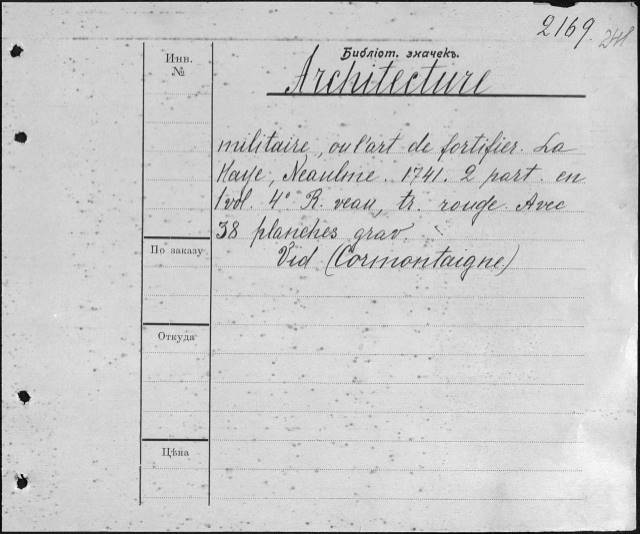 2169. 241
Инв. №
Библіот. значекъ.
Architecture
militaire, ou l'art de fortifier. La
Haye, Neaulme. 1741. 2 part. en
1 vol. 4° R. veau, tr. rouge. Avec
38 planches grav.
Vid (Cormontaigne)
По заказу
Откуда
Цѣна